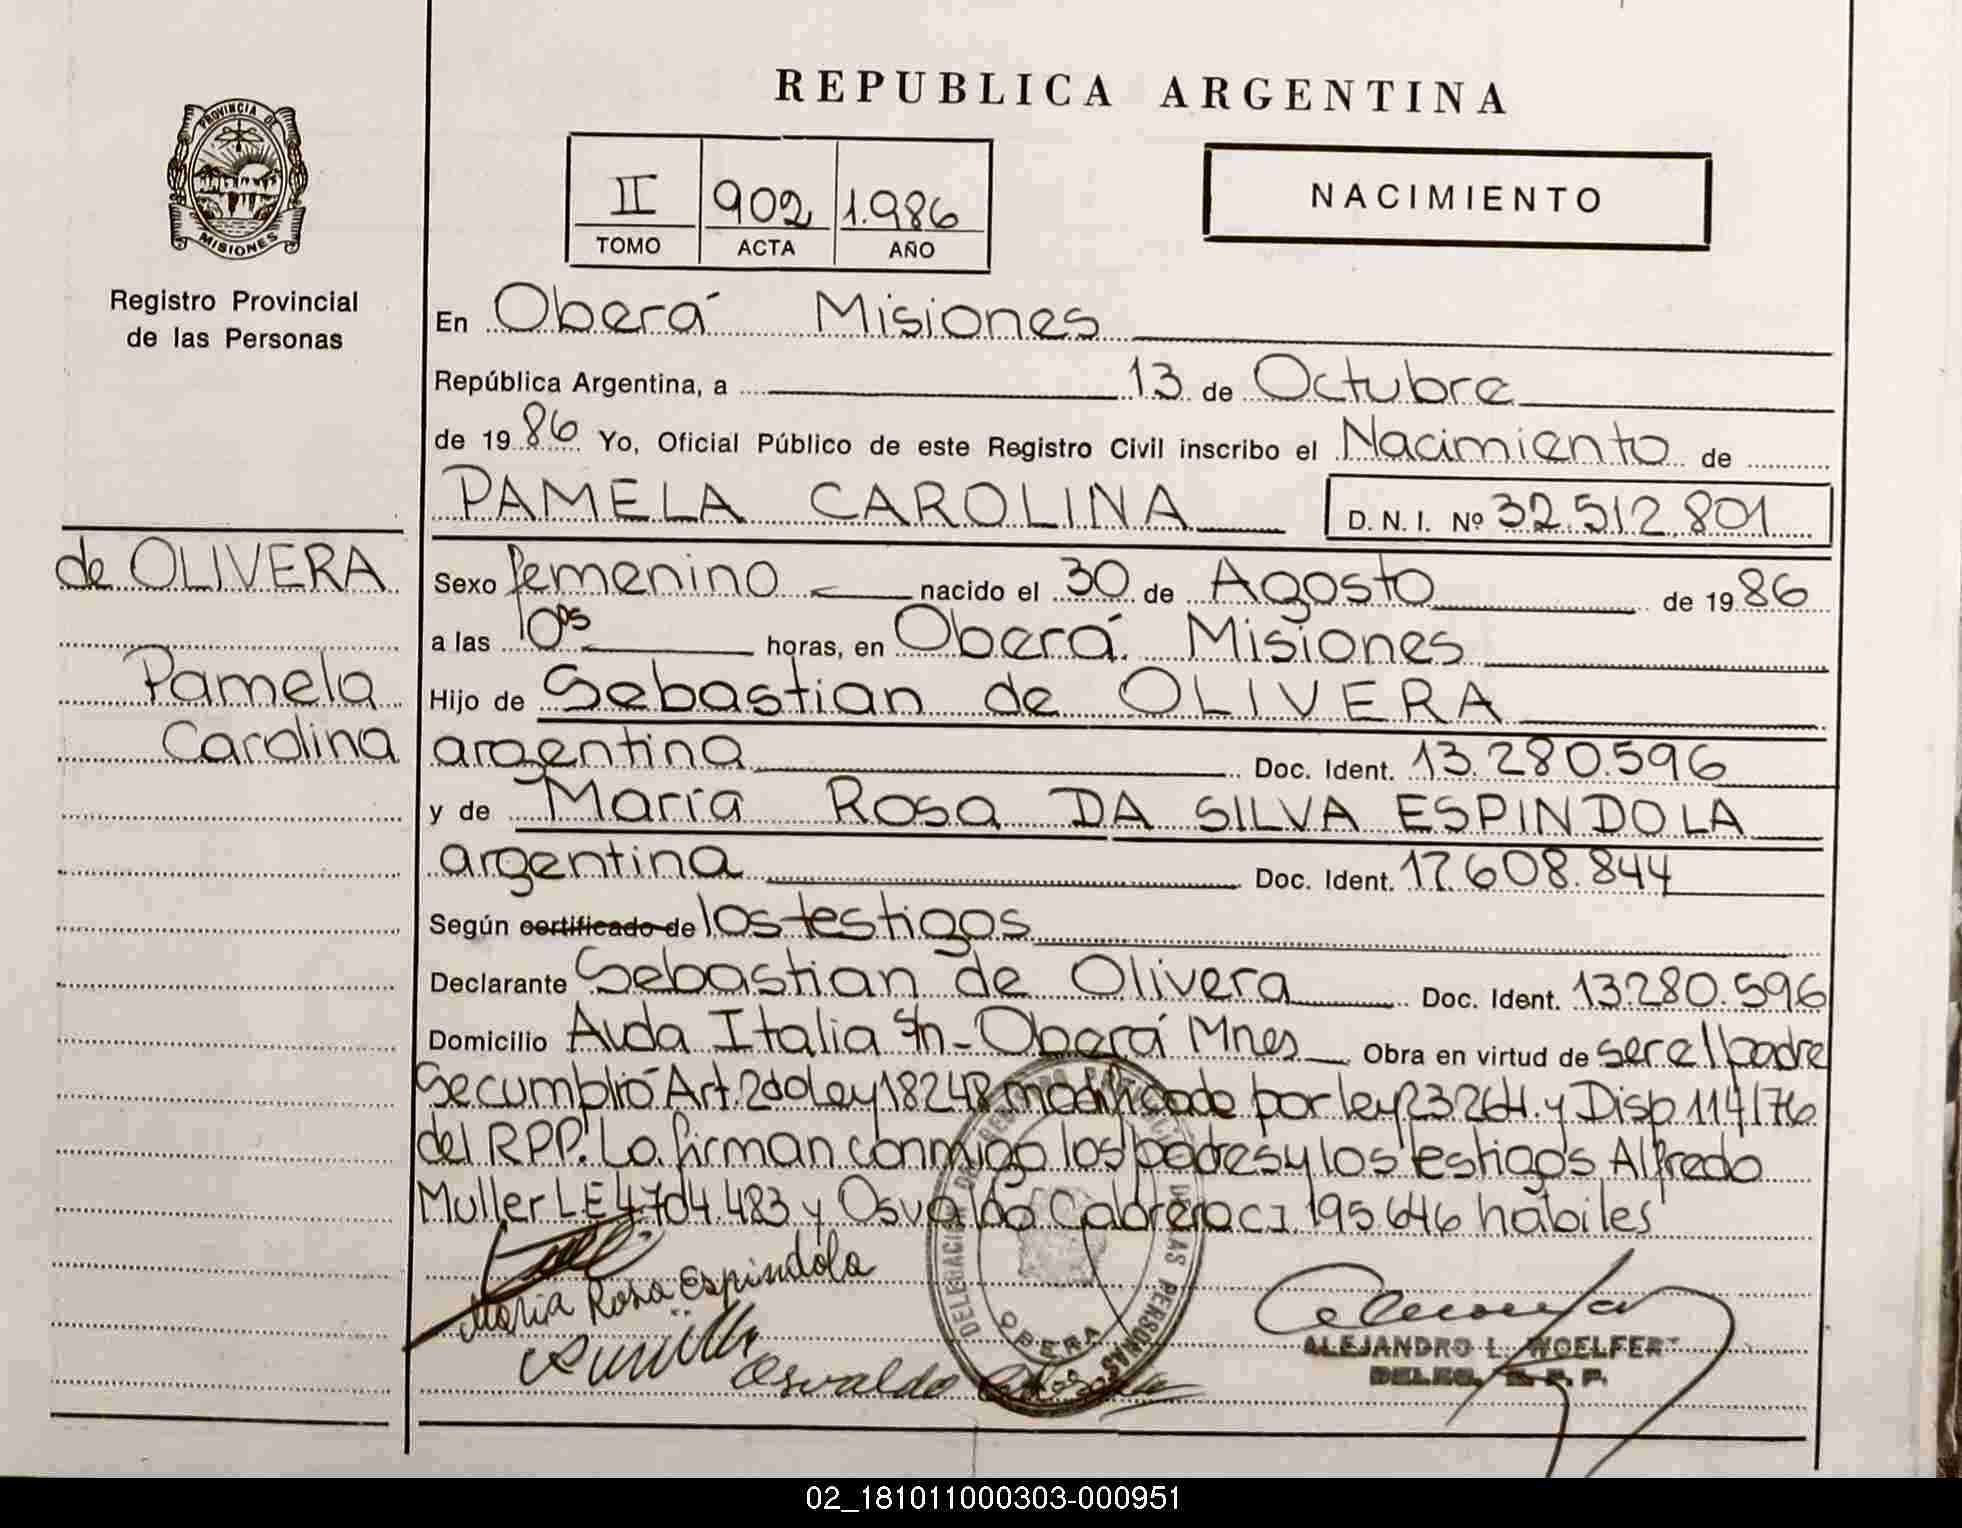 REPUBLICA ARGENTINA
PROVINCIA DE
MISIONES
Registro Provincial
de las Personas
II 902 1.986
TOMO ACTA AÑO
NACIMIENTO
En Oberá Misiones
República Argentina, a 13 de Octubre
de 1986 Yo, Oficial Público de este Registro Civil inscribo el Nacimiento de
PAMELA CAROLINA D. N. I. Nº 32.512.801
de OLIVERA
Pamela
Carolina
Sexo femenino nacido el 30 de Agosto de 1986
a las 10ºs horas, en Oberá. Misiones
Hijo de Sebastian de OLIVERA
argentina Doc. Ident. 13.280.596
y de María Rosa DA SILVA ESPINDOLA
argentina Doc. Ident. 17.608.844
Según certificado de los testigos
Declarante Sebastian de Olivera Doc. Ident. 13.280.596
Domicilio Avda Italia s/n - Oberá Mnes Obra en virtud de ser el padre
Se cumplió Art. 2do Ley 18248 modificada por ley 23264. y Disp 114/76
del RPP. La firman conmigo los padres y los testigos Alfredo
Muller LE 4.704.483 y Osvaldo Cabrera CI 195.646 hábiles
Maria Rosa Espindola
Osvaldo
DELEGACION DEL REGISTRO PROVINCIAL DE LAS PERSONAS
OBERA
ALEJANDRO L. WOELFERT
DELEG. R. P. P.
02_181011000303-000951